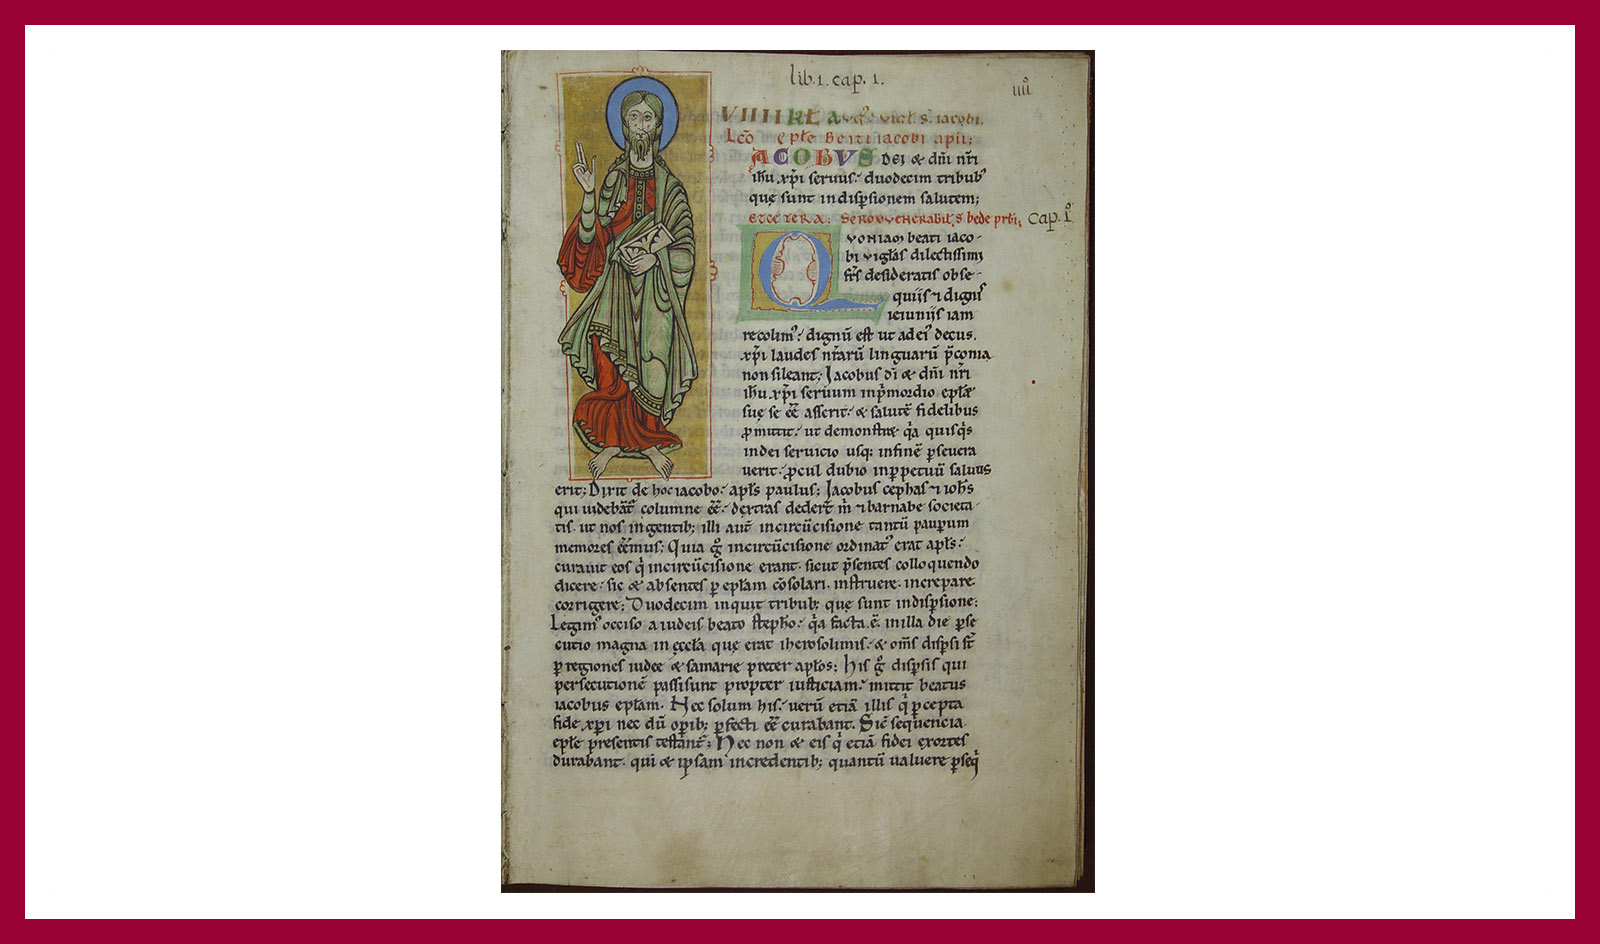 lib. 1. cap. 1.
iiiiº
VIIII KŁ Aug'. vigł. S. iacobi.
Lc̄o epłe Beati iacobi apłi;
IACOBVS Dei & dn̄i nr̄i
ihu xp̄i seruus: duodecim tribub'
quę sunt in dispsionem salutem;
et cetera; Sermo venerabił. S. bede prb̄i; Cap. Iº
QVONIAM beati iaco-
bi vigłas dilectissimi
fr̄s desideratis obse-
quiis ⁊ dignis
ieiuniis iam
recolim': dignū est ut ad ei' decus.
xp̄i laudes nr̄arū linguarū p̄conia
non sileant; Jacobus dī & dn̄i nr̄i
ihu xp̄i seruum in p̄mordio epłæ
suę se eē̄ asserit: & salutē fidelibus
p̱mittit: ut demonstræ q̄a quisq̄s
in dei seruicio usq; in finē p̱seuera
uerit: p̱cul dubio in p̱petuū saluus
erit; Dixit de hoc iacobo: apłs paulus; Jacobus cephas ⁊ ioħs
qui uidebāt' columne eē̄: dextras dedert̄ m̄ ⁊ barnabe societa
tis. ut nos in gentib; illi aut̄ in circūcisione tantū paup̱um
memores eē̄mus; Quia g̊ in circūcisione ordinat' erat apłs:
curauit eos q̄ in circūcisione erant. sicut p̄sentes colloquendo
dicere: sic & absentes p̱ epłam cōsolari. instruere. increpare.
corrigere; Duodecim inquit tribub; quę sunt in disp̱sione:
Legim' occiso a iudeis beato stepħo: q̄a facta. ē. in illa die p̱se
cutio magna in ęccłā quę erat iherosolimis: & om̄s disp̱si st̄
p̱ regiones iudee & samarie preter apłos; His g̊ disp̱sis qui
persecutionē passi sunt propter iusticiam: mittit beatus
iacobus epłam. Nec solum his: uerū etiā illis q̄ p̱cepta
fide xp̄i nec dū op̱ib; p̱fecti eē̄ curabant. Sic̄ sequencia
epłe presentis testant'; Nec non & eis q̄ etiā fidei exortes
durabant. qui & ipsam in credentib; quantū ualuere p̱seq̄